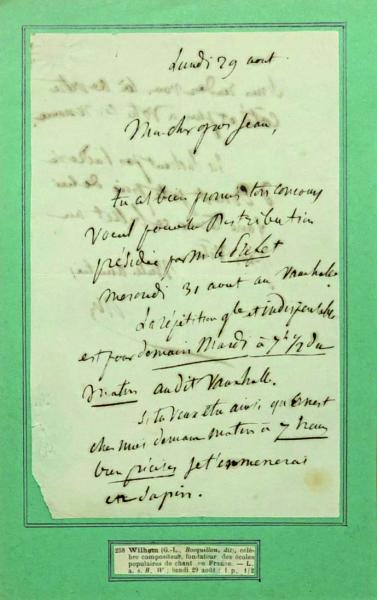 Lundi 29 aout.
Mon cher gros Jean,
tu as bien promis ton concours
vocal pour la Distribution
présidée par Mr le Préfet
mercredi 31 aout au Vauxhall.
La répétition gle et indispensable
est pour demain Mardi à 7h 1/2 du
matin audit Vauxhall.
Si tu veux etre ainsi qu'Ernest
chez moi demain matin à 7 heures
bien précises je t'emmenerai
en sapin.
258 Wilhem (G.-L. Bocquillon, dit), célè-
bre compositeur, fondateur des écoles
populaires de chant en France. — L.
a. s. B. W.; lundi 29 août; 1 p. 1/2